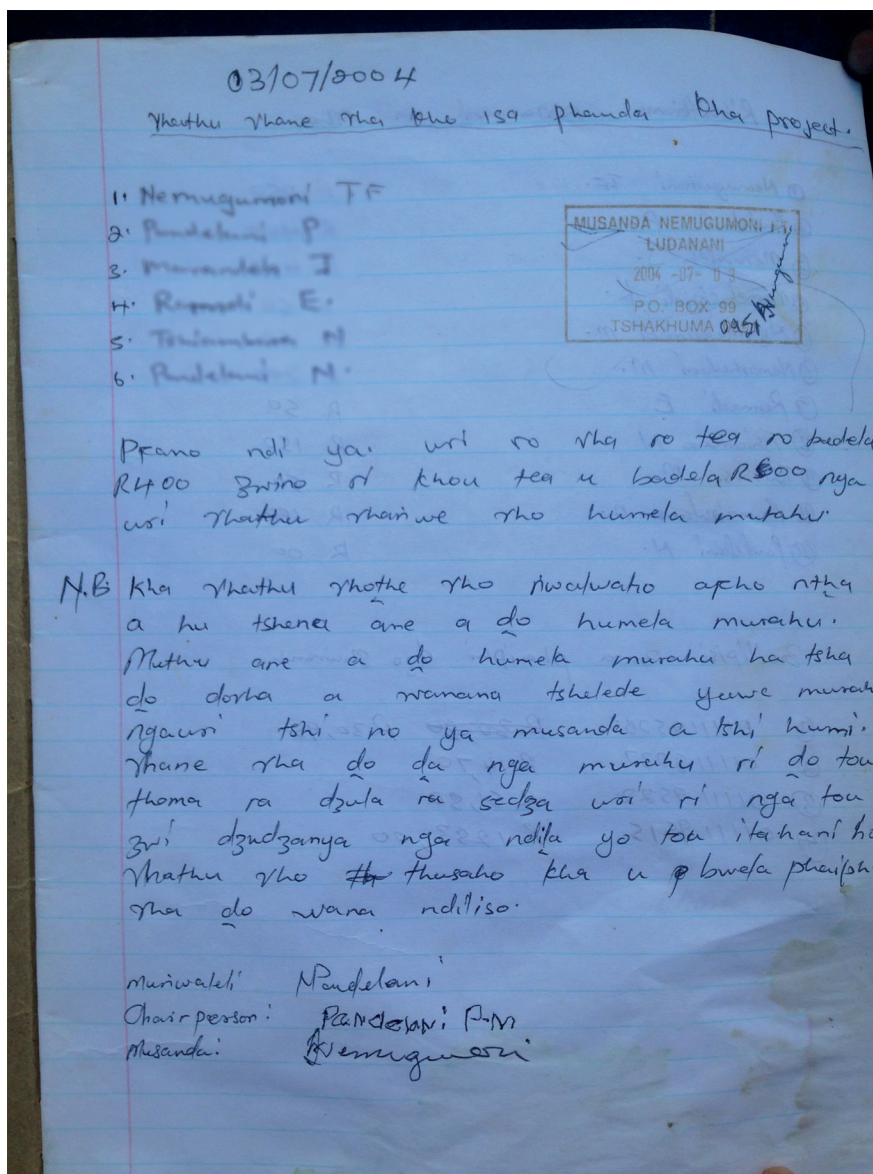 03/07/2004
Vhathu vhane vha kho isa phanda kha project.
1. Nemugumoni TF
MUSANDA NEMUGUMONI
2. P
LUDANANI
3. J
2004 -07- 03
4. E.
P.O. BOX 99
5. N
TSHAKHUMA 0951
6. Pandelani N.
Pfano ndi ya. uri ro vha ro tea ro badela
R400 zwino ri khou tea u badela R500 nga
uri vhathu vhaṅwe vho humela murahu.
N.B Kha vhathu vhoṱhe vho ṅwalwaho afho nṱha
a hu tshena ane a ḓo humela murahu.
Muthu ane a ḓo humela murahu ha tsha
ḓo dovha a wanana tshelede yawe murah
ngauri tshi no ya musanda a tshi humi.
Vhane vha ḓo ḓa nga murahu ri ḓo tou
thoma ra dzula ra sedza uri ri nga tou
zwi dzudzanya nga nḓila yo tou itahani h
Vhathu vho thusaho kha u bwela phaiph
vha ḓo wana ndiliso.
Muṅwaleli NPandelani
Chairperson: Pandelani P.M
Musanda: Nemugumoni